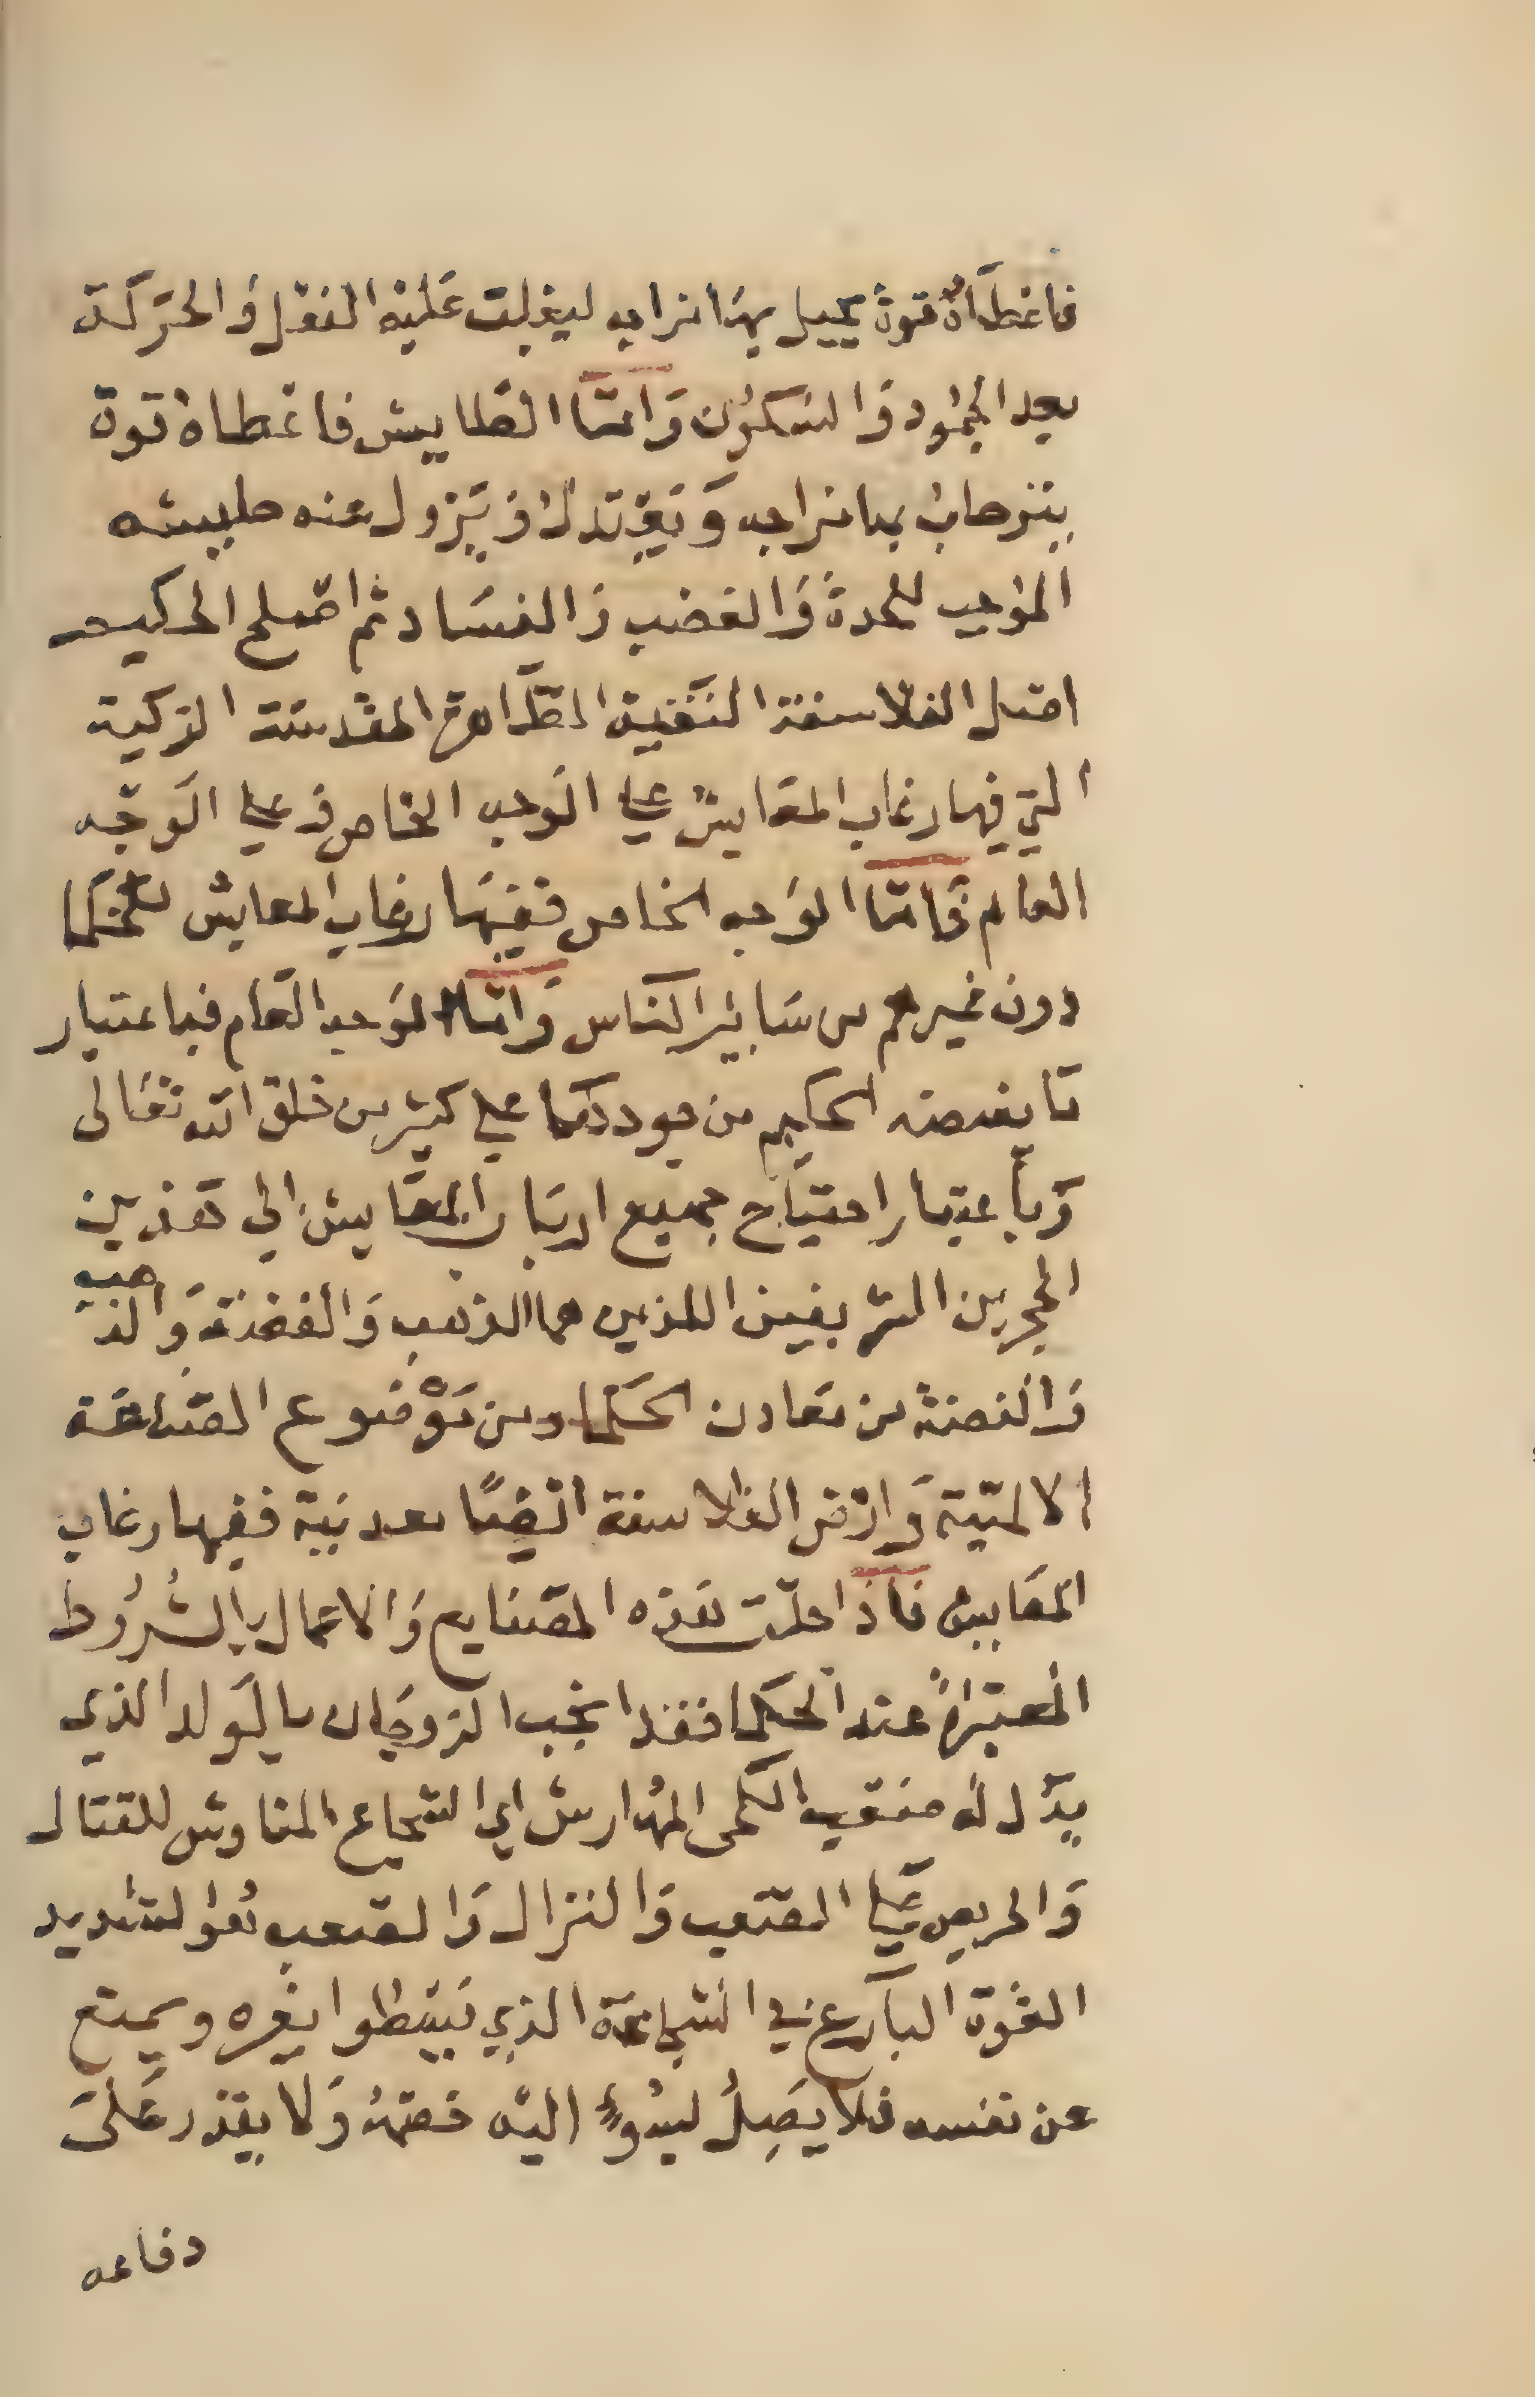 فاعطاه قوة يميل بها مزاجه ليغلب عليه النقل والحركة
بعد الجمود والسكون وَامّا الطايش فاعطاه قوة
ينزحان بها مزاجه وَيعتدل وَيزول عنه طيشه
الموجب للحدة وَالغضب وَالفساد ثم اصلح الحكيم
اصل الفلاسفة النقية الطاهرة المقدسة الزكية
التي فيها رغاب المعايش علي الوجه الخاص وَعلي الوجه
العام فَامّا الوجه الخاص ففيها رغاب المعايش للحكما
دون غيرهم من سَاير الناس وَامّا الوجه العام فباعتبار
مَا يفيضه الحكيم من جود الحكما علي كثير من خلق الله تعَالى
وَباعتبار احتياج جميع ارباب المعَايش الي هَذين
الحجرين الشريفين اللذين هما الذهب وَالفضة وَالذهب
وَالفضة من معَادن الحكما ومن مَوْضوع الصناعَة
الالهيّة وَارْض الفلاسفة ايْضًا معدنية ففيها رغاب
المعَايش فاذا حلّت هَذه الصنايع وَالاعمال بالشُرُوط
المعتبرة عند الحكما فقد انجب الزوجان بالوَلد الذي
يدّل له منقبة الكمى المهارش اي الشجاع المناوش للقتال
وَالحريص عَلي الصّعب وَالنزال وَالصعب هُو الشديد
القُوة البارع في الشجاعَة الذي يَسطوا بغيره ويمتع
عن نفسه فلا يَصِلُ لسُوءٍ اليْه خصمهُ وَلا يقدر عَلىَ
دفاعه